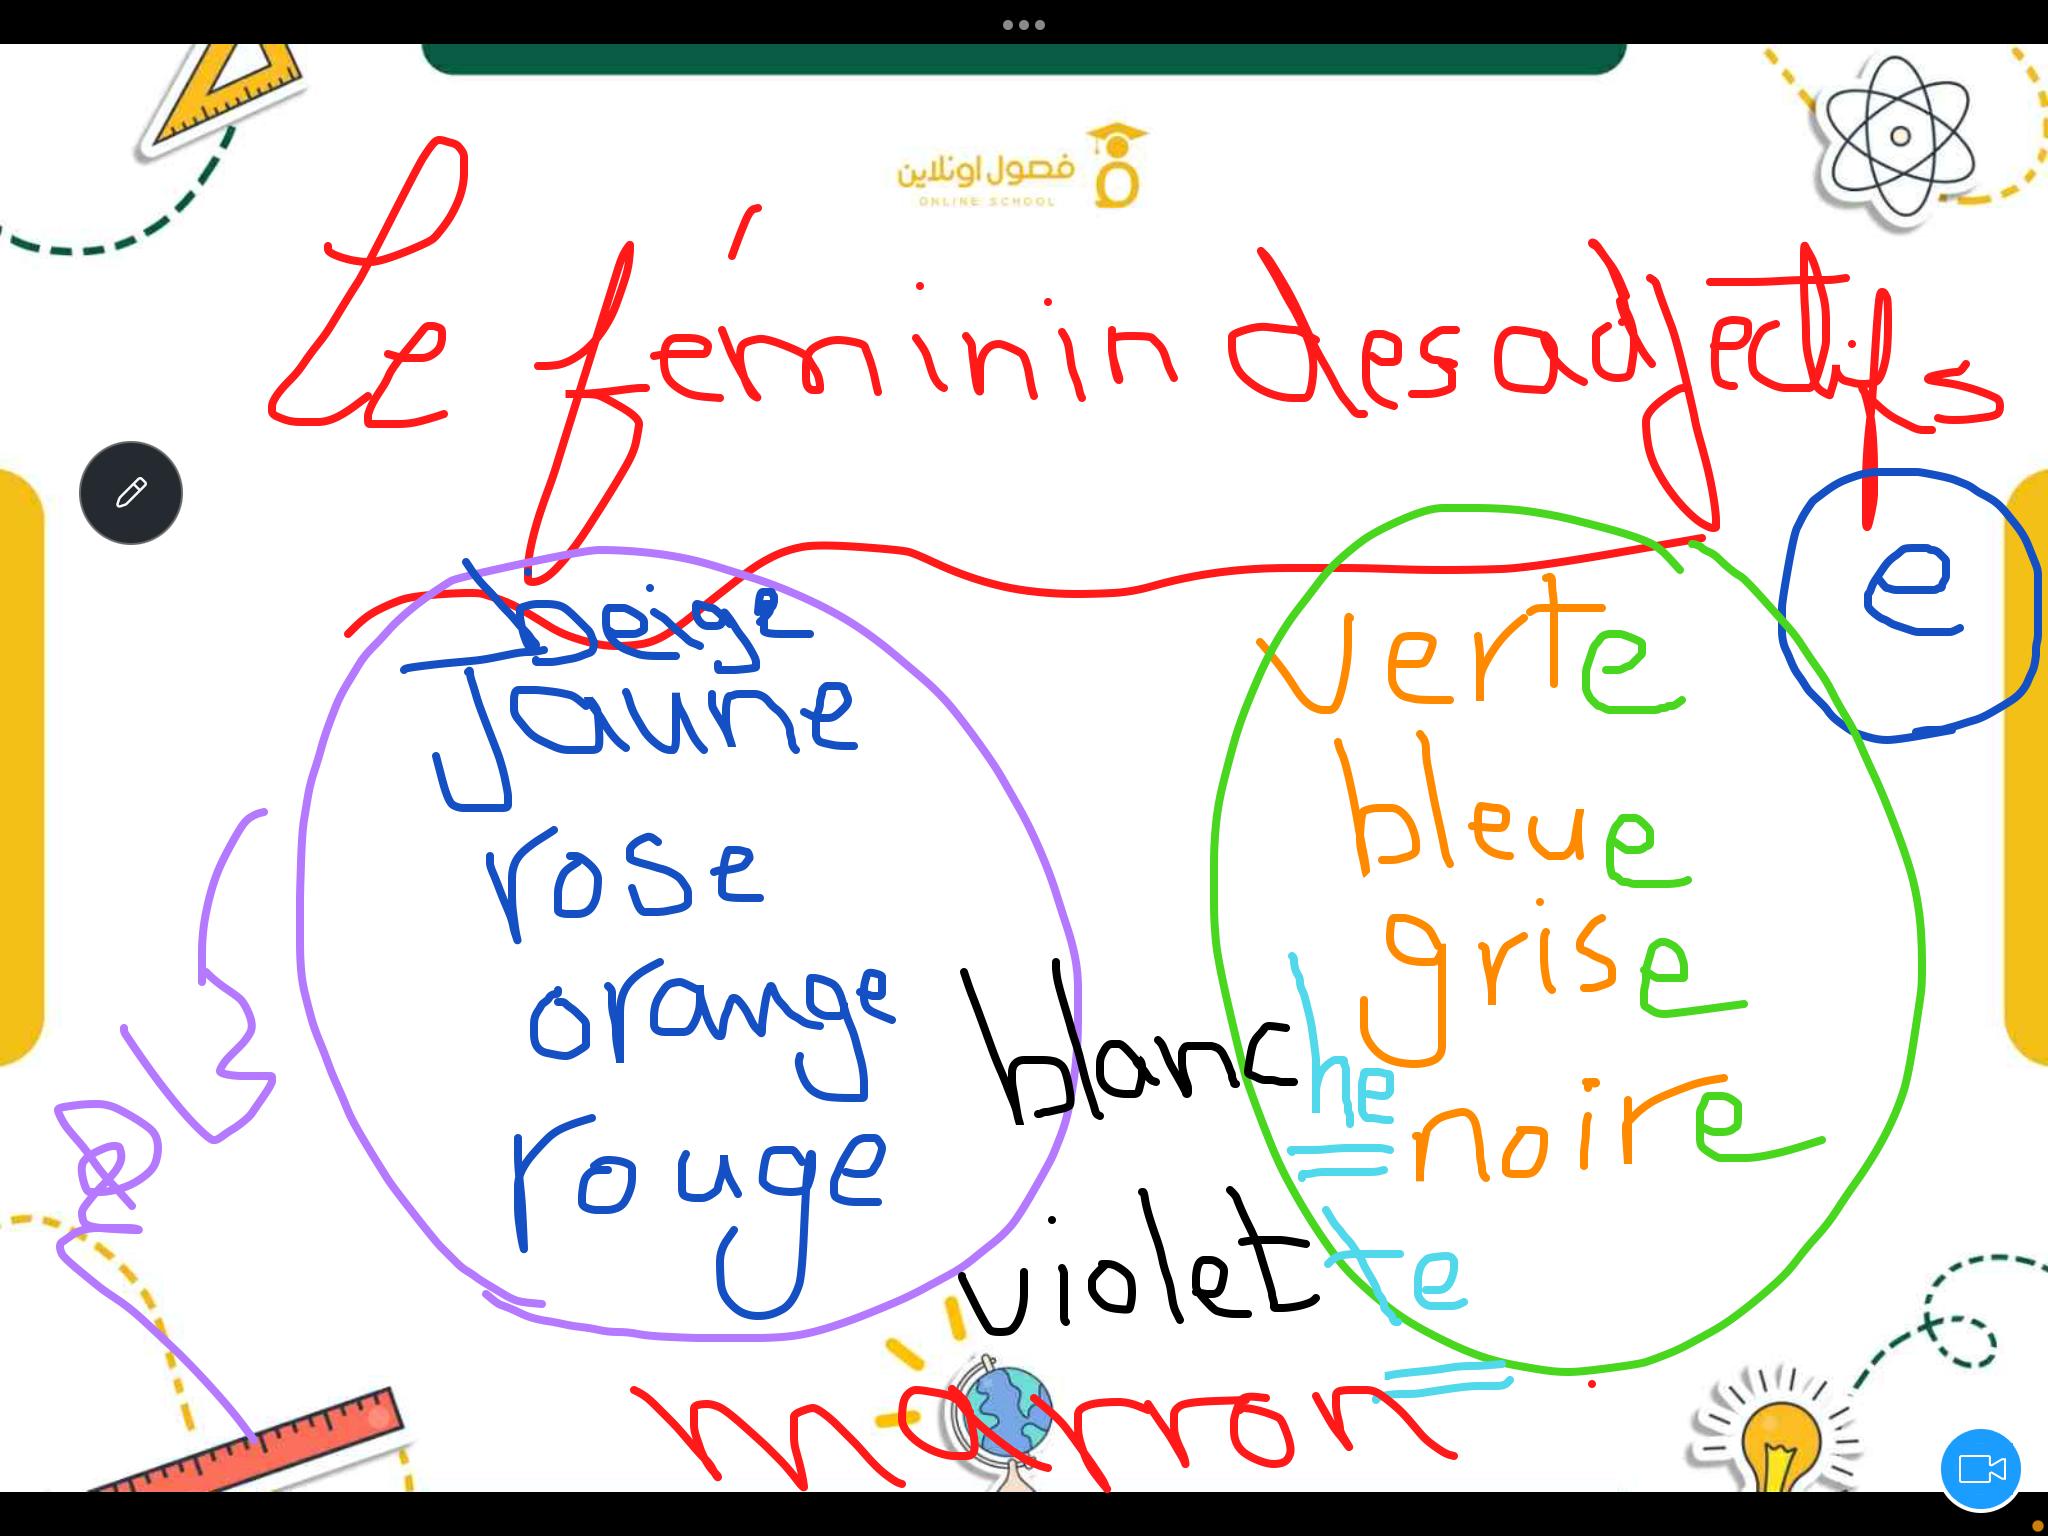 فصول اونلاين
ONLINE SCHOOL
Le féminin des adjectifs
e
beige
Jaune
rose
orange
rouge
verte
bleue
grise
noire
blanche
violette
marron